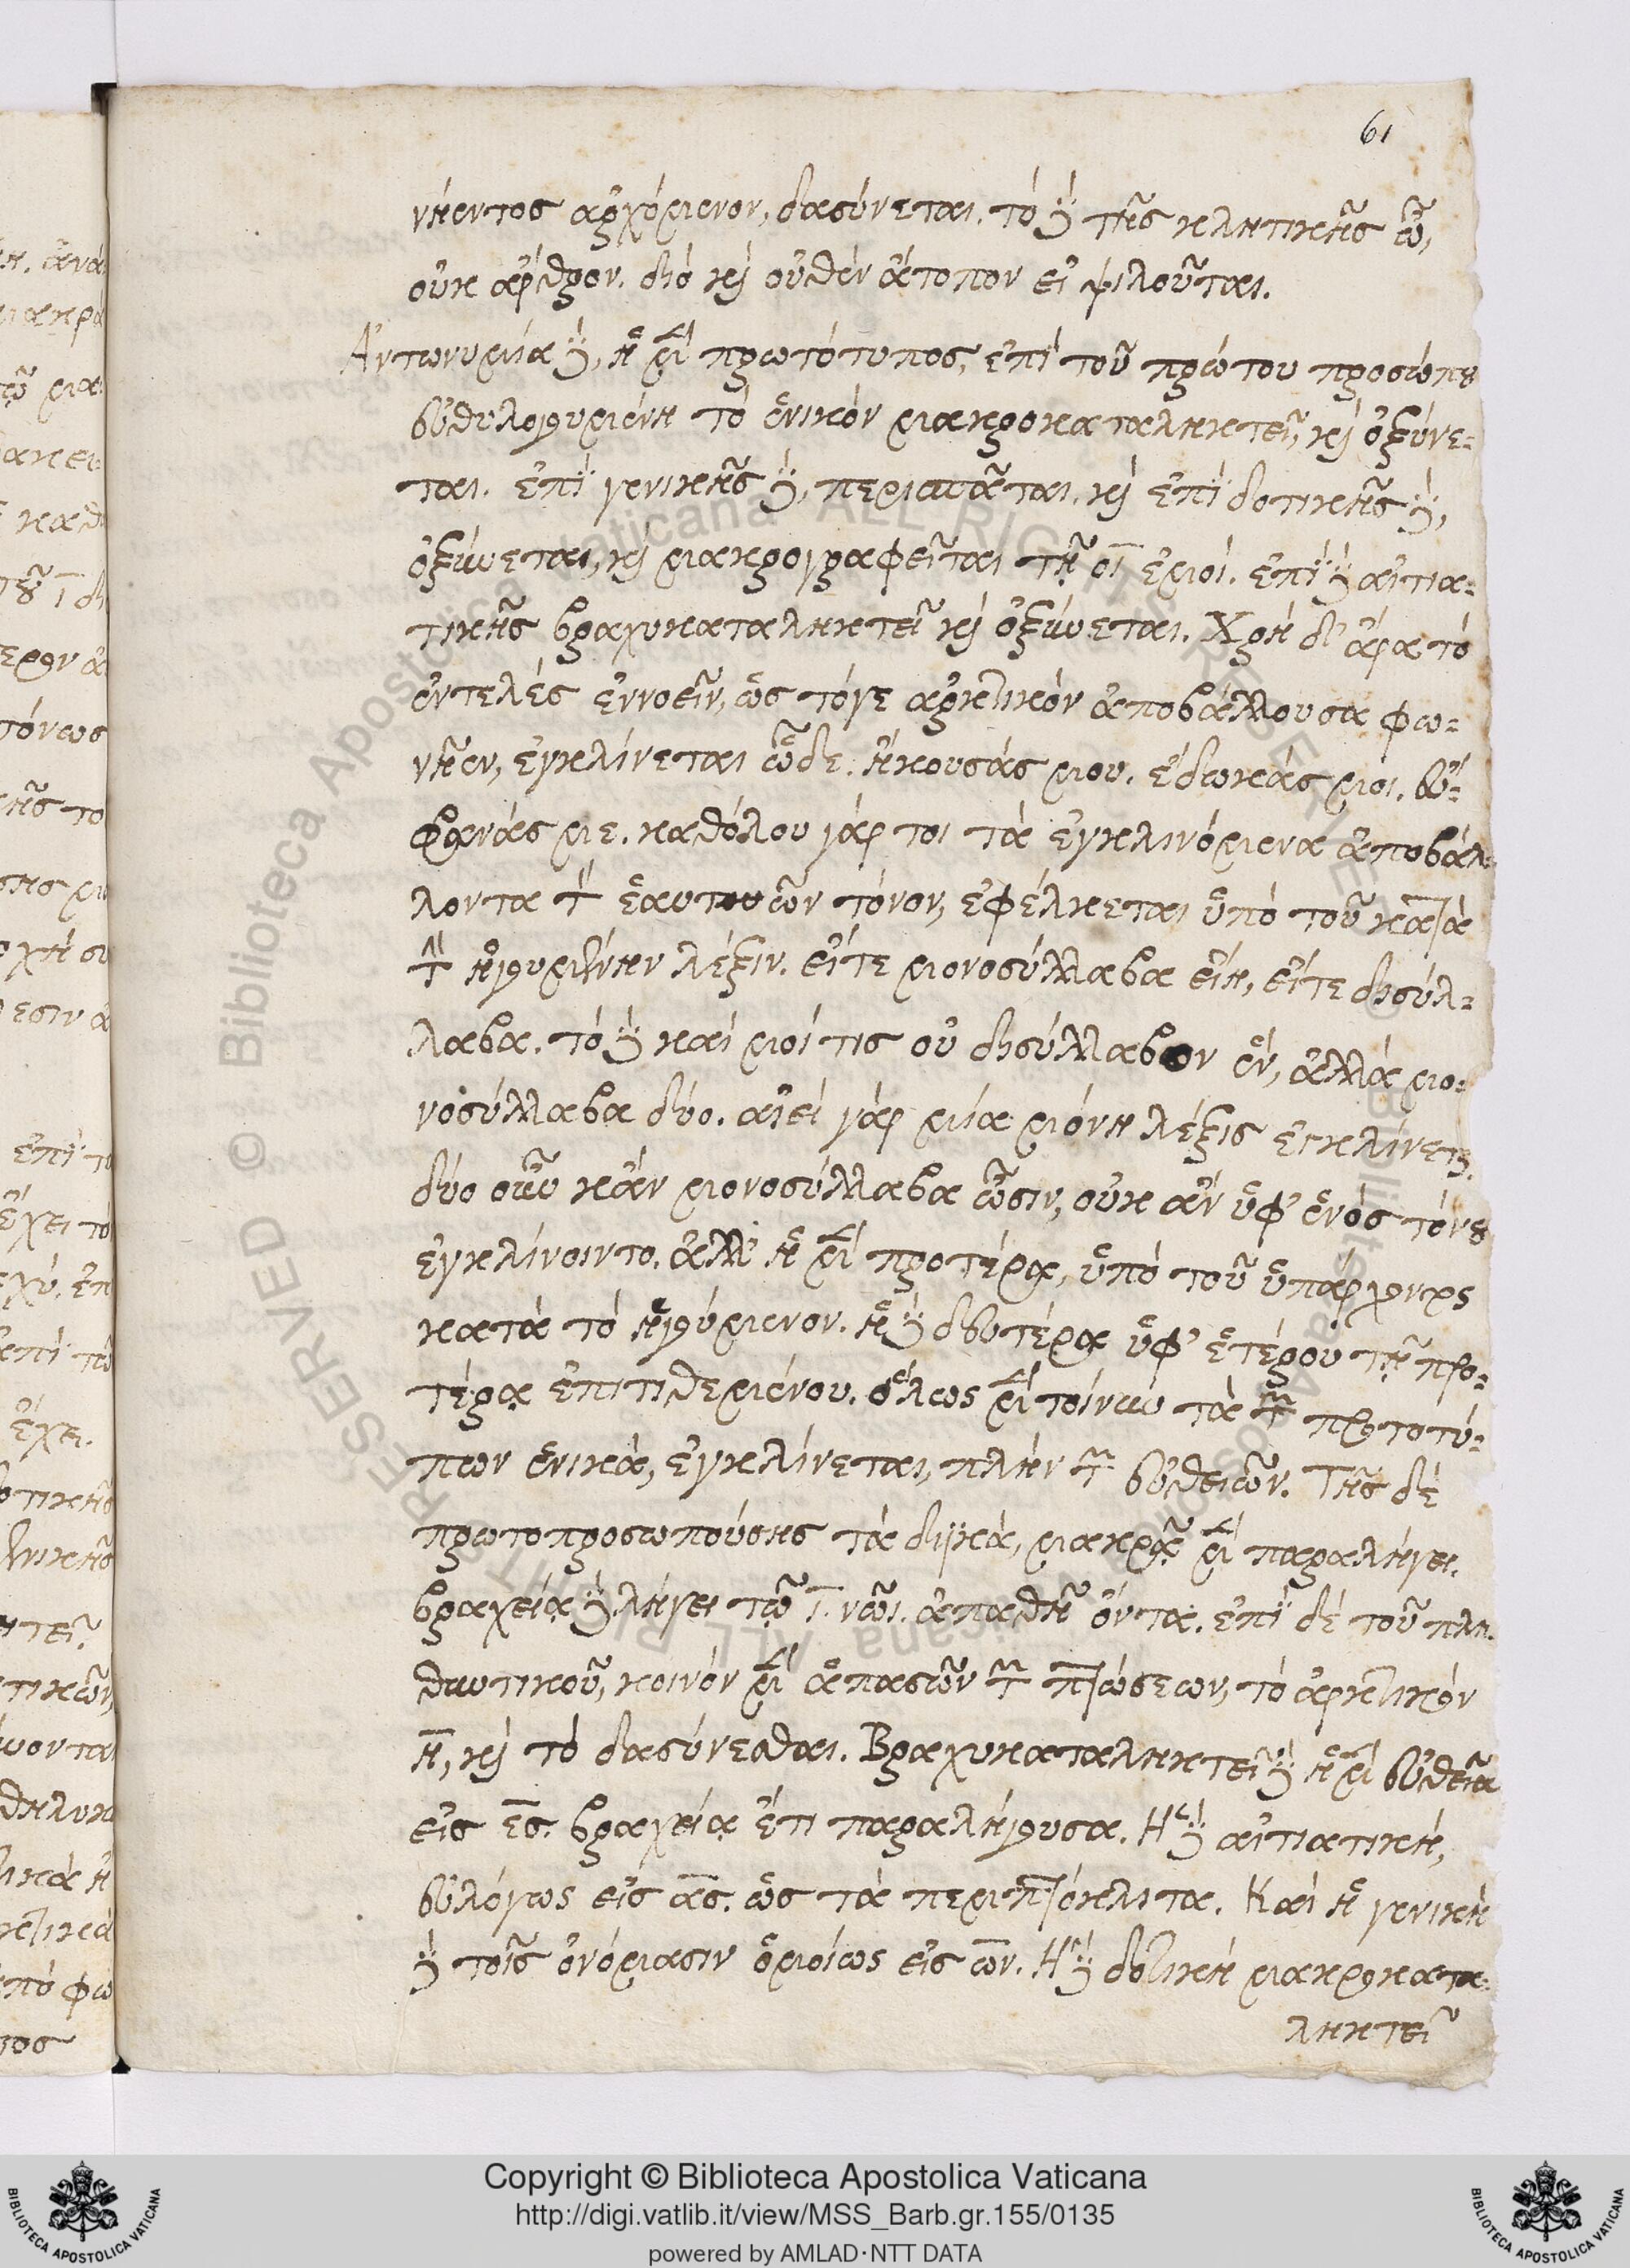 61
νήεντος ἀρχόμενον, δασύνεται. τὸ δὲ τῆς κλητικῆς ὦ,
οὐκ ἄρθρον. διὸ καὶ οὐδὲν ἄτοπον εἰ ψιλοῦται.
Ἀντωνυμία δὲ, ἡ μὲν πρωτότυπος, ἐπὶ τοῦ πρώτου προσώπου
εὐθυνομένη τὸ ἑνικὸν μακροκαταληκτεῖ, καὶ ὀξύνε-
ται. ἐπὶ γενικῆς δὲ, περισπᾶται. καὶ ἐπὶ δοτικῆς δὲ,
ὀξύνεται, καὶ μακρογραφεῖται τῇ οι ἐμοί. ἐπὶ δὲ αἰτια-
τικῆς βραχυκαταληκτεῖ καὶ ὀξύνεται. Χρὴ δ' ἄρα τὸ
ἐντελὲς ἐννοεῖν, ὡς τό γε ἀρκτικὸν ἀποβάλλουσα φω-
νῆεν, ἐγκλίνεται ὧδε. ἤκουσάς μου. ἔδωκάς μοι. εὔ-
φρανάς με. καθόλου γάρ τοι τὰ ἐγκλινόμενα ἀποβάλ-
λοντα τὸν ἑαυτῶν τόνον, ἐφέλκεται ὑπὸ τοῦ κατὰ
τὴν ἡγουμένην λέξιν. εἴτε μονοσύλλαβα εἴη, εἴτε δισύλ-
λαβα. τὸ δὲ καί μοί τις οὐ δισύλλαβον ἕν, ἀλλὰ μο-
νοσύλλαβα δύο. αἰεὶ γὰρ μία μόνη λέξις ἐγκλίνεται.
δύο οὖν κἂν μονοσύλλαβα ὦσιν, οὐκ ἂν ὑφ' ἑνὸς τόνου
ἐγκλίνοιντο. ἀλλ' ἡ μὲν προτέρα, ὑπὸ τοῦ ὑπάρχοντος
κατὰ τὸ ἡγούμενον. ἡ δὲ δευτέρα ὑφ' ἑτέρου τῇ προ-
τέρᾳ ἐπιτιθεμένου. ὅλως μὲν τοίνυν τὰ τῶν πρωτοτύ-
πων ἑνικά, ἐγκλίνεται, πλὴν τῶν εὐθειῶν. Τῆς δὲ
πρωτοπροσωπούσης τὰ δυϊκά, μακρᾷ μὲν παραλήγει.
βραχείᾳ δὲ λήγει τῷ ι. νῶι. ἀπαθῆ ὄντα. ἐπὶ δὲ τοῦ πλη-
θυντικοῦ, κοινὸν μὲν ἁπασῶν τῶν πτώσεων, τὸ ἀρκτικὸν
η, καὶ τὸ δασύνεσθαι. Βραχυκαταληκτεῖ δὲ ἡ μὲν εὐθεῖα
εἰς ες. βραχείᾳ ἔτι παραλήγουσα. Ἡ δὲ αἰτιατική,
εὐλόγως εἰς ας. ὡς τὰ περιττόκλιτα. Καὶ ἡ γενικὴ
δὲ τοῖς ὀνόμασιν ὁμοίως εἰς ων. Ἡ δὲ δοτικὴ μακροκατα-
ληκτεῖ
Copyright © Biblioteca Apostolica Vaticana
http://digi.vatlib.it/view/MSS_Barb.gr.155/0135
powered by AMLAD·NTT DATA